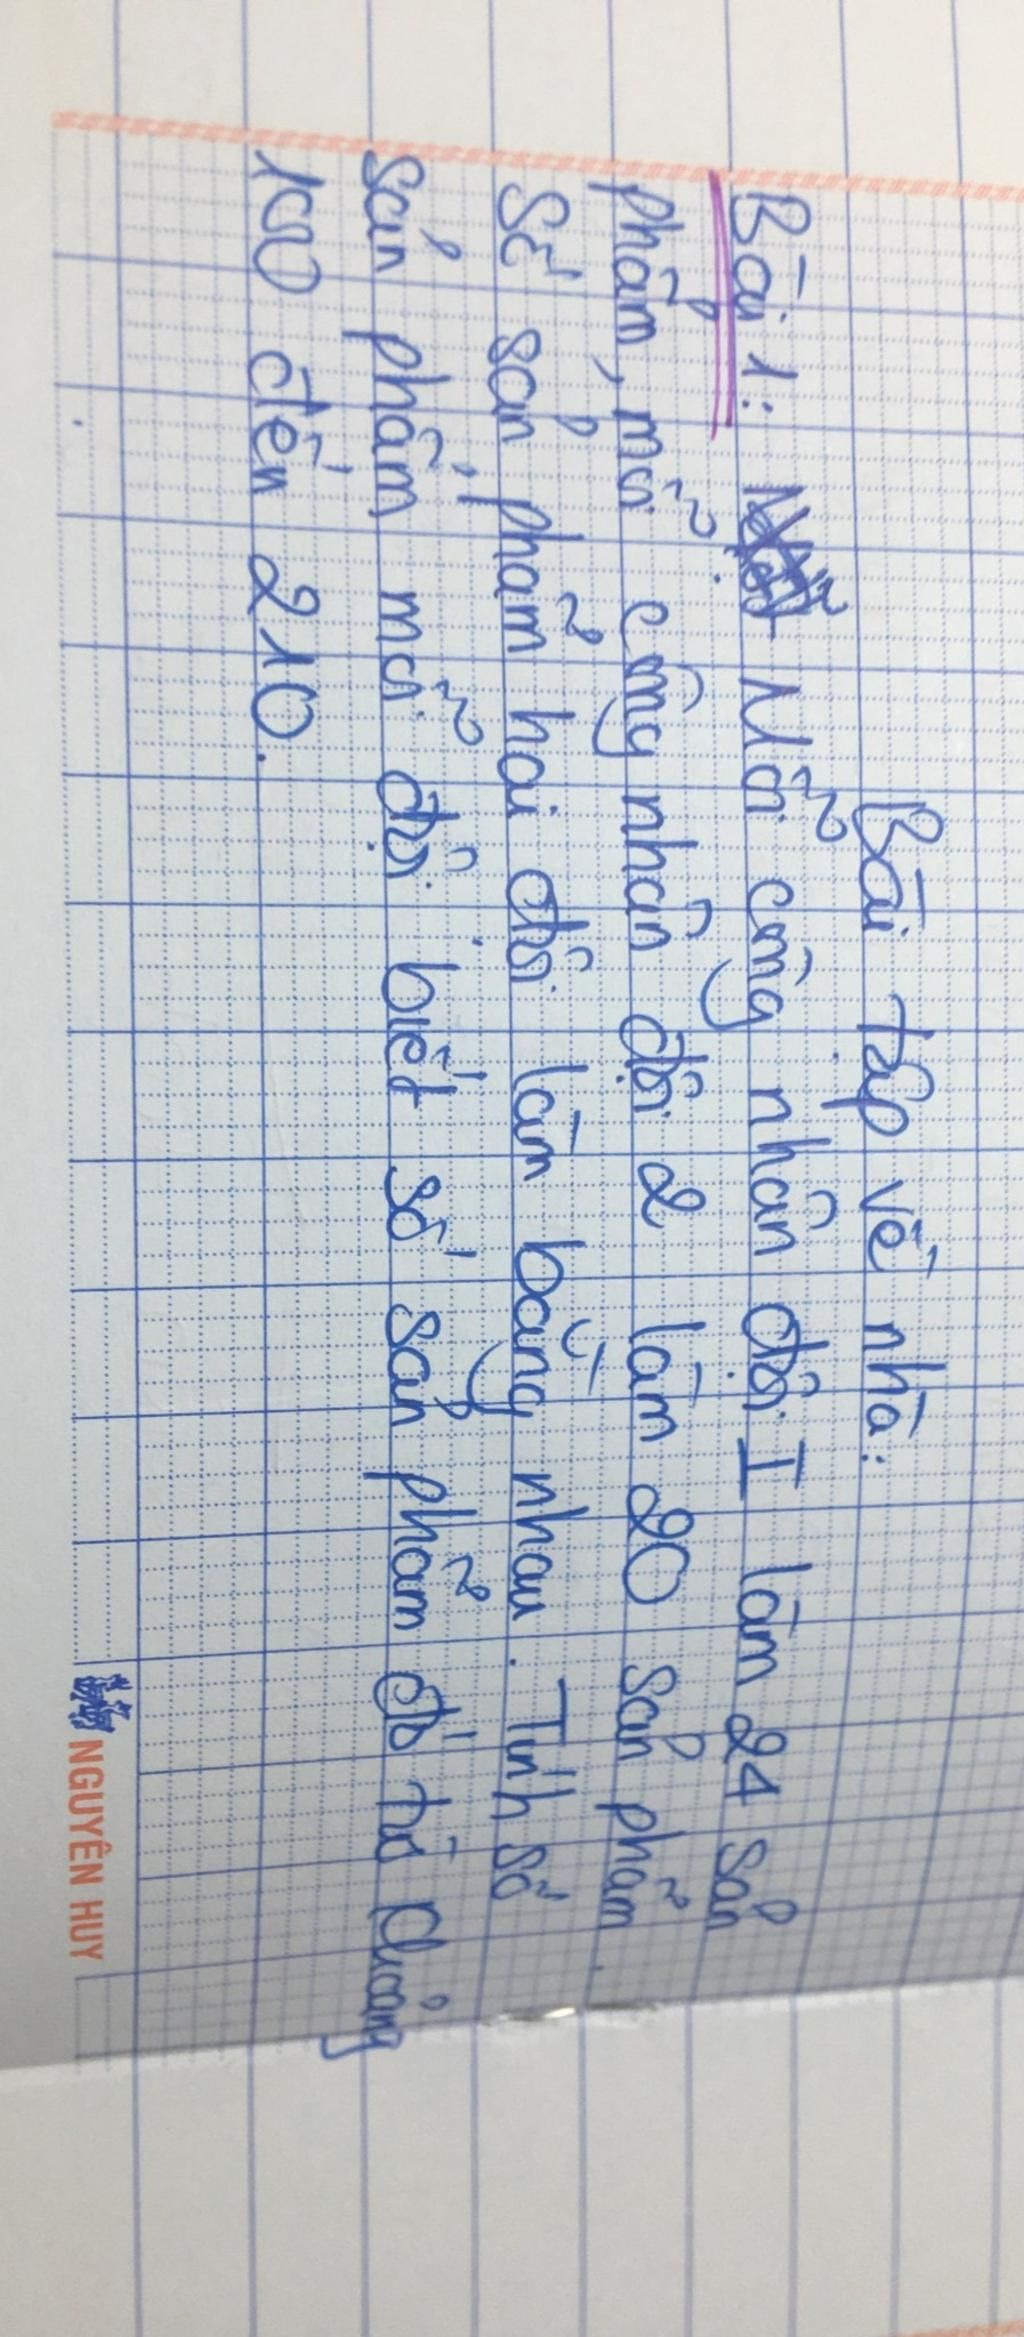 Bài tập về nhà:
Bài 1: Mỗi công nhân đội I làm 24 sản
phẩm, mỗi công nhân đội 2 làm 20 sản phẩm.
Số sản phẩm hai đội làm bằng nhau. Tính số
sản phẩm mỗi đội biết số sản phẩm đó từ khoảng
100 đến 210.
NGUYÊN HUY